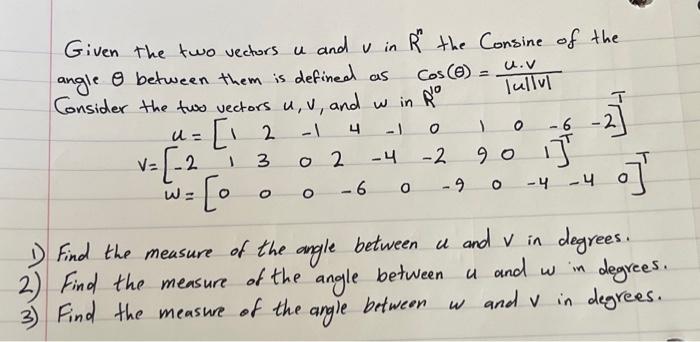 Given the two vectors u and v in Rⁿ the Consine of the
angle θ between them is defined as Cos(θ) = u.v / |u||v|
Consider the two vectors u, v, and w in R¹⁰
u = [1 2 -1 4 -1 0 1 0 -6 -2]ᵀ
v = [-2 1 3 0 2 -4 -2 9 0 1]ᵀ
w = [0 0 0 -6 0 -9 0 -4 -4 0]ᵀ
1) Find the measure of the angle between u and v in degrees.
2) Find the measure of the angle between u and w in degrees.
3) Find the measure of the angle between w and v in degrees.